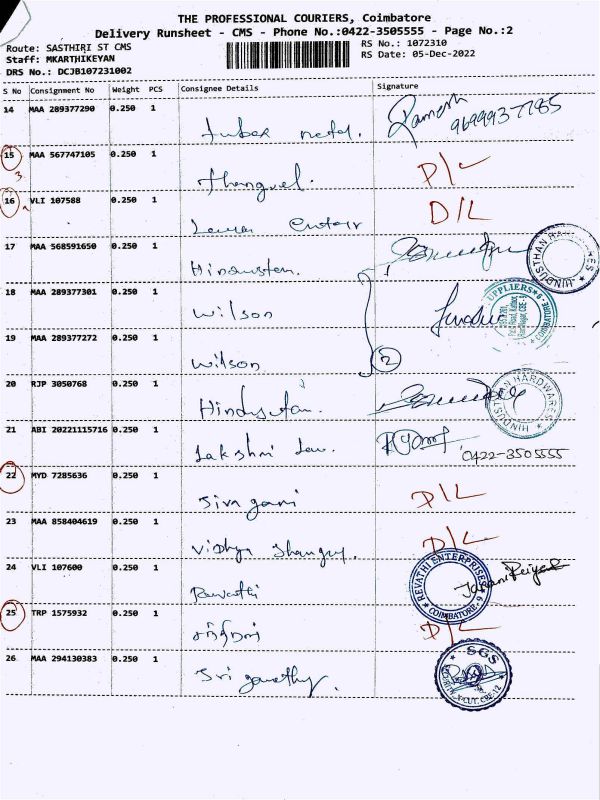 THE PROFESSIONAL COURIERS, Coimbatore
Delivery Runsheet - CMS - Phone No.:0422-3505555 - Page No.:2
Route: SASTHIRI ST CMS
Staff: MKARTHIKEYAN
DRS No.: DCJB107231002
RS No.: 1072310
RS Date: 05-Dec-2022
S No Consignment No Weight PCS Consignee Details Signature
14 MAA 289377290 0.250 1 Ramesh
9699937785
15 MAA 567747105 0.250 1 Thangvel. D/L
3.
16 VLI 107588 0.250 1 D/L
17 MAA 568591650 0.250 1 Hindusten. HINDUSTHAN HARDWARES
18 MAA 289377301 0.250 1 Wilson UPPLIERS COIMBATORE
19 MAA 289377272 0.250 1 Wilson 2
20 RJP 3050768 0.250 1 Hindustan. HINDUSTHAN HARDWARES
21 ABI 20221115716 0.250 1 Lakshmi 0422-3505555
22 MYD 7285636 0.250 1 D/L
23 MAA 858404619 0.250 1 Vidhya D/L
24 VLI 107600 0.250 1 Revathi REVATHI ENTERPRISES COIMBATORE-9
25 TRP 1575932 0.250 1 D/L
26 MAA 294130383 0.250 1 Sri SGS X-CUT, CBE-12